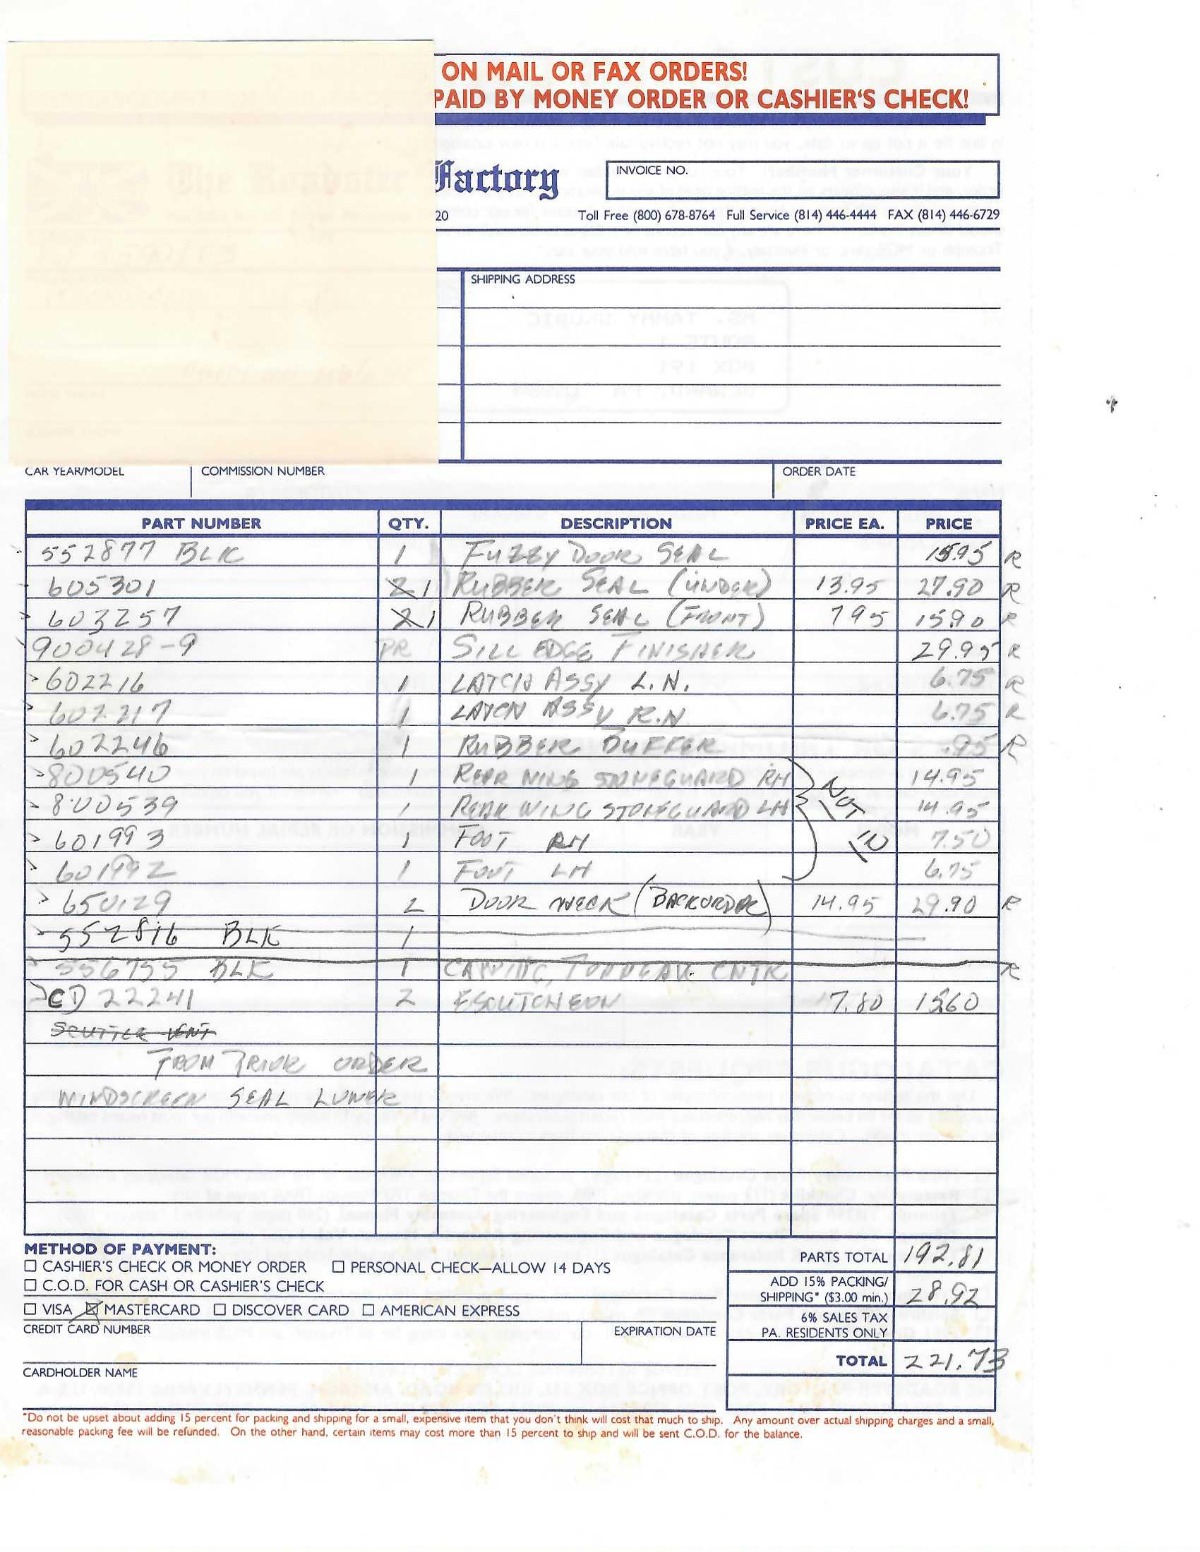 ON MAIL OR FAX ORDERS!
PAID BY MONEY ORDER OR CASHIER'S CHECK!
Factory
INVOICE NO.
20 Toll Free (800) 678-8764 Full Service (814) 446-4444 FAX (814) 446-6729
SHIPPING ADDRESS
CAR YEAR/MODEL COMMISSION NUMBER ORDER DATE
PART NUMBER QTY. DESCRIPTION PRICE EA. PRICE
552877 BLK 1 FUZZY DOOR SEAL 15.95 R
605301 2 1 RUBBER SEAL (UNDER) 13.95 27.90 R
603257 2 1 RUBBER SEAL (FRONT) 795 15.90 R
900428-9 PR SILL EDGE FINISHER 29.95 R
602216 1 LATCH ASSY L.N. 6.75 R
602217 1 LATCH ASSY R.N 6.75 R
602246 1 RUBBER BUFFER .95 R
800540 1 REAR WING STONEGUARD RH 14.95
800539 1 REAR WING STONEGUARD LH 14.95
NOT IN
601993 1 FOOT RH 7.50
601992 1 FOOT LH 6.75
650129 2 DOOR (BACKORDER) 14.95 29.90 R
552816 BLK 1
556755 BLK 1 TONNEAU CNTR R
CD 22241 2 ESCUTCHEON 7.80 15.60
SCUTTLE VENT
FROM PRIOR ORDER
WINDSCREEN SEAL
METHOD OF PAYMENT:
CASHIER'S CHECK OR MONEY ORDER PERSONAL CHECK—ALLOW 14 DAYS
C.O.D. FOR CASH OR CASHIER'S CHECK
VISA MASTERCARD DISCOVER CARD AMERICAN EXPRESS
CREDIT CARD NUMBER EXPIRATION DATE
CARDHOLDER NAME
PARTS TOTAL 192.81
ADD 15% PACKING/
SHIPPING* ($3.00 min.) 28.92
6% SALES TAX
PA. RESIDENTS ONLY
TOTAL 221.73
*Do not be upset about adding 15 percent for packing and shipping for a small, expensive item that you don't think will cost that much to ship. Any amount over actual shipping charges and a small,
reasonable packing fee will be refunded. On the other hand, certain items may cost more than 15 percent to ship and will be sent C.O.D. for the balance.